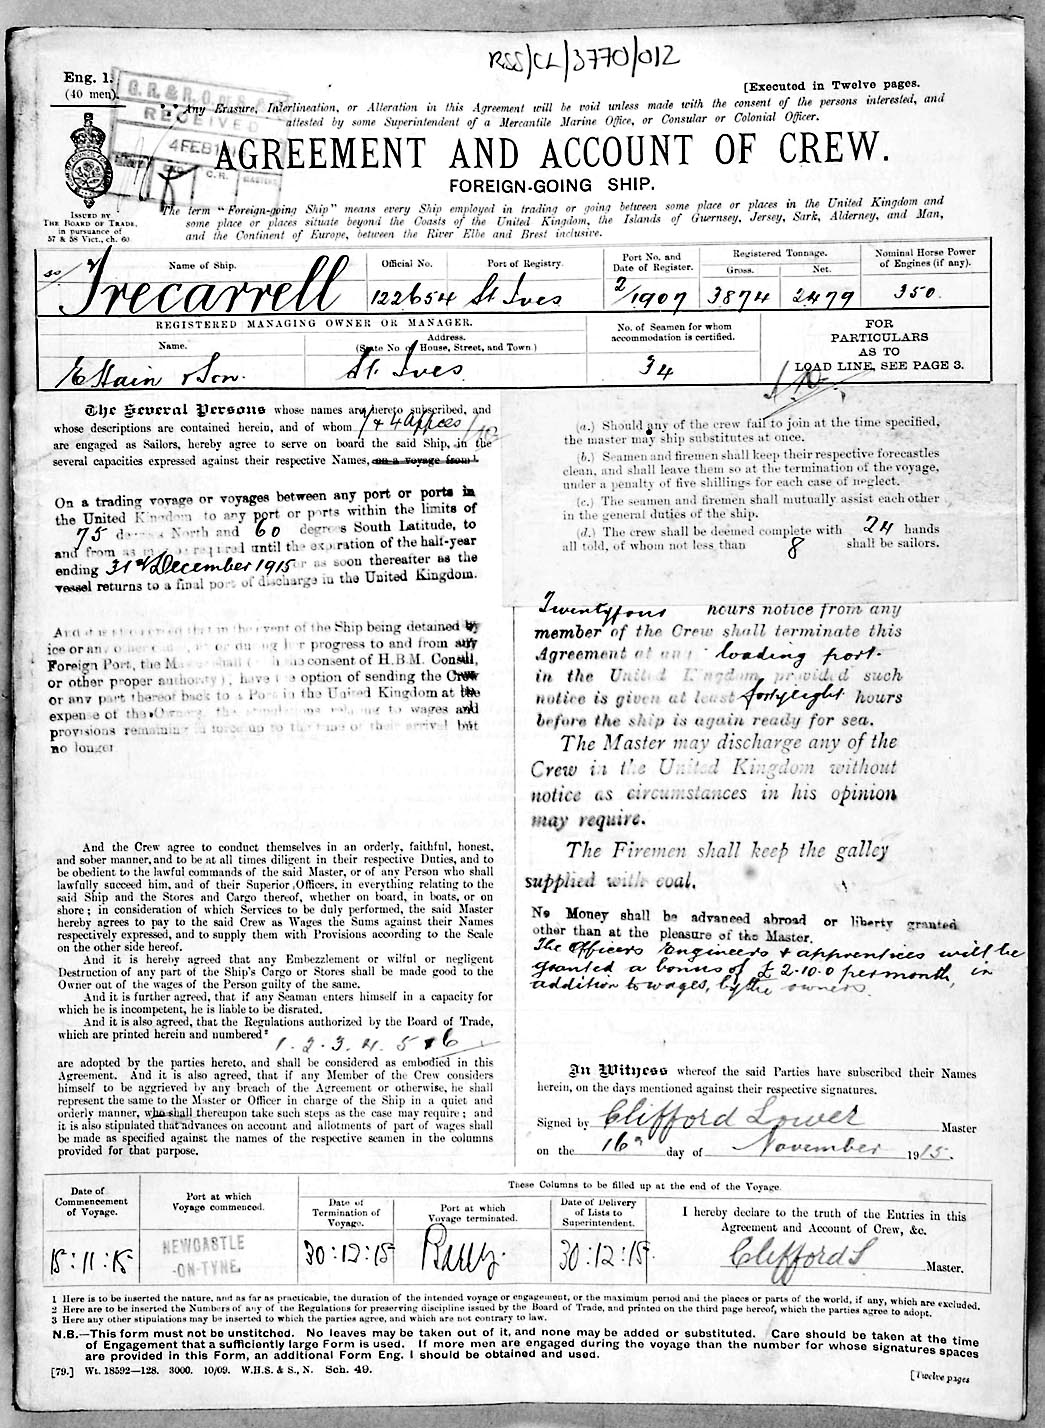 RSS/CL/3770/012
Eng. 1.
(40 men).
[Executed in Twelve pages.
G.R. & R.O.M.S.
RECEIVED
4 FEB 19
C.R.
Any Erasure, Interlineation, or Alteration in this Agreement will be void unless made with the consent of the persons interested, and
attested by some Superintendent of a Mercantile Marine Office, or Consular or Colonial Officer.
AGREEMENT AND ACCOUNT OF CREW.
FOREIGN-GOING SHIP.
ISSUED BY
THE BOARD OF TRADE,
in pursuance of
57 & 58 Vict., ch. 60
The term "Foreign-going Ship" means every Ship employed in trading or going between some place or places in the United Kingdom and
some place or places situate beyond the Coasts of the United Kingdom, the Islands of Guernsey, Jersey, Sark, Alderney, and Man,
and the Continent of Europe, between the River Elbe and Brest inclusive.
Name of Ship. Official No. Port of Registry. Port No. and Date of Register. Registered Tonnage. Gross. Net. Nominal Horse Power of Engines (if any).
ss/ Trecarrell 122654 St Ives 2/1907 3874 2479 350
REGISTERED MANAGING OWNER OR MANAGER.
Name. Address. (State No. of House, Street, and Town.)
No. of Seamen for whom accommodation is certified.
FOR
PARTICULARS
AS TO
LOAD LINE, SEE PAGE 3.
E Hain & Son. St. Ives 34
The Several Persons whose names are hereto subscribed, and
whose descriptions are contained herein, and of whom 7 & 4 Appces
are engaged as Sailors, hereby agree to serve on board the said Ship, in the
several capacities expressed against their respective Names, on a voyage from¹
On a trading voyage or voyages between any port or ports in
the United Kingdom to any port or ports within the limits of
75 degrees North and 60 degrees South Latitude, to
and from as may be required until the expiration of the half-year
ending 31st December 1915 or as soon thereafter as the
vessel returns to a final port of discharge in the United Kingdom.
And it is that in the event of the Ship being detained by
ice or any or during her progress to and from any
Foreign Port, the Master shall consent of H.B.M. Consul,
or other proper authority), have the option of sending the Crew
or any part thereof back to a Port in the United Kingdom at the
expense of the Owners, the stipulations relating to wages and
provisions remaining in force up to the time of their arrival but
no longer
And the Crew agree to conduct themselves in an orderly, faithful, honest,
and sober manner, and to be at all times diligent in their respective Duties, and to
be obedient to the lawful commands of the said Master, or of any Person who shall
lawfully succeed him, and of their Superior Officers, in everything relating to the
said Ship and the Stores and Cargo thereof, whether on board, in boats, or on
shore; in consideration of which Services to be duly performed, the said Master
hereby agrees to pay to the said Crew as Wages the Sums against their Names
respectively expressed, and to supply them with Provisions according to the Scale
on the other side hereof.
And it is hereby agreed that any Embezzlement or wilful or negligent
Destruction of any part of the Ship's Cargo or Stores shall be made good to the
Owner out of the wages of the Person guilty of the same.
And it is further agreed, that if any Seaman enters himself in a capacity for
which he is incompetent, he is liable to be disrated.
And it is also agreed, that the Regulations authorized by the Board of Trade,
which are printed herein and numbered² 1. 2. 3. 4. 5 & 6
are adopted by the parties hereto, and shall be considered as embodied in this
Agreement. And it is also agreed, that if any Member of the Crew considers
himself to be aggrieved by any breach of the Agreement or otherwise, he shall
represent the same to the Master or Officer in charge of the Ship in a quiet and
orderly manner, who shall thereupon take such steps as the case may require; and
it is also stipulated that advances on account and allotments of part of wages shall
be made as specified against the names of the respective seamen in the columns
provided for that purpose.
(a.) Should any of the crew fail to join at the time specified,
the master may ship substitutes at once.
(b.) Seamen and firemen shall keep their respective forecastles
clean, and shall leave them so at the termination of the voyage,
under a penalty of five shillings for each case of neglect.
(c.) The seamen and firemen shall mutually assist each other
in the general duties of the ship.
(d.) The crew shall be deemed complete with 24 hands
all told, of whom not less than 8 shall be sailors.
Twentyfour hours notice from any
member of the Crew shall terminate this
Agreement at any loading port.
in the United Kingdom provided such
notice is given at least fortyeight hours
before the ship is again ready for sea.
The Master may discharge any of the
Crew in the United Kingdom without
notice as circumstances in his opinion
may require.
The Firemen shall keep the galley
supplied with coal.
No Money shall be advanced abroad or liberty granted
other than at the pleasure of the Master.
The Officers Engineers & apprentices will be
granted a bonus of £2-10-0 per month, in
addition to wages, by the owners.
In Witness whereof the said Parties have subscribed their Names
herein, on the days mentioned against their respective signatures.
Signed by Clifford Lower Master
on the 16th day of November 1915.
These Columns to be filled up at the end of the Voyage.
Date of Commencement of Voyage. Port at which Voyage commenced. Date of Termination of Voyage. Port at which Voyage terminated. Date of Delivery of Lists to Superintendent.
I hereby declare to the truth of the Entries in this
Agreement and Account of Crew, &c.
15:11:15 NEWCASTLE -ON-TYNE. 30:12:15 Barry. 30:12:15. Clifford L Master.
1 Here is to be inserted the nature, and as far as practicable, the duration of the intended voyage or engagement, or the maximum period and the places or parts of the world, if any, which are excluded.
2 Here are to be inserted the Numbers of any of the Regulations for preserving discipline issued by the Board of Trade, and printed on the third page hereof, which the parties agree to adopt.
3 Here any other stipulations may be inserted to which the parties agree, and which are not contrary to law.
N.B.—This form must not be unstitched. No leaves may be taken out of it, and none may be added or substituted. Care should be taken at the time
of Engagement that a sufficiently large Form is used. If more men are engaged during the voyage than the number for whose signatures spaces
are provided in this Form, an additional Form Eng. 1 should be obtained and used.
[79.] Wt. 18592—128. 3000. 10/09. W.H.S. & S., N. Sch. 49.
[Twelve pages